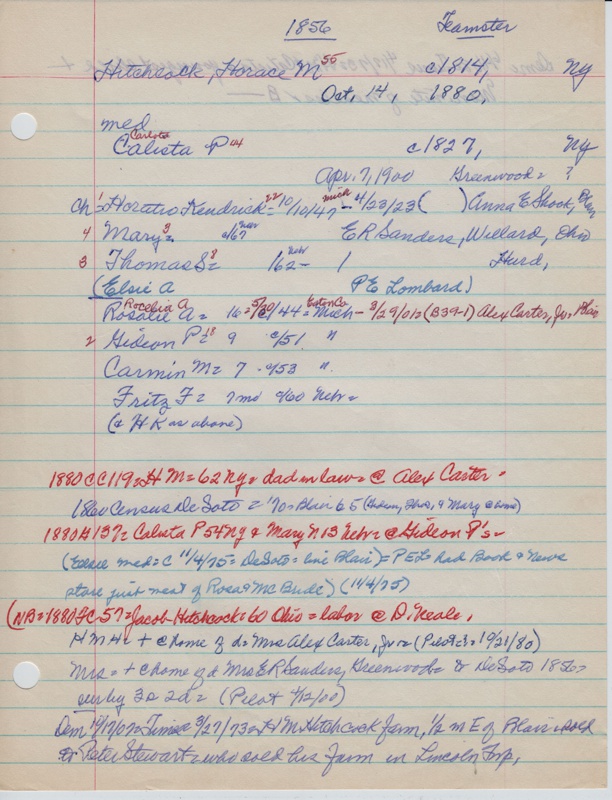 1856 Teamster
Hitchcock, Horace M 55 c1814, NY
Oct, 14, 1880,
med Carlota
Calista P 44 c1827, NY
Apr. 7, 1900 Greenwood = ?
Ch = Horatio Kendrick = 22 10/10/47 Mich - 4/23/23 ( ) Anna E Shock,
4 Mary = 3 c/67 Nebr E R Sanders, Willard, Ohio
3 Thomas S = 8 '62 - Nebr 1 Hurd,
(Elsie A P E Lombard)
Rocelia A
Rosalie A = 16 = 5/30/44 = Eaton Co Mich - 3/29/01 = (B39-1) Alex Carter, Jr = Blair
2 Gideon P = 18 9 c/51 "
Carmin M = 7 - c/53 "
Fritz F = 7 mo c/60 Nebr =
(& H K as above)
1880 CC 119 = H M = 62 NY = dad in law = @ Alex Carter =
1860 Census De Soto = '70 = Blair 65 (, Thos, & Mary @ home)
1880 H 137 = Calista P 54 NY & Mary N 13 Nebr = @ Gideon P's =
(Elsie med = C 11/4/75 = DeSoto = line Blair) = P E L = had Book & News
store just west of Rosa & McBride) (11/4/75)
(NB = 1880 GC 57 = Jacob Hitchcock = 60 Ohio = labor @ D. Neale,
H M H = + @ home of d = Mrs Alex Carter, Jr = (Pilot = 10/21/80)
Mrs = + @ home of d Mrs E R Sanders, Greenwood = to DeSoto 1856 =
surv by 3s 2d = (Pilot 4/12/00)
Dem = Times 3/27/73 = H M Hitchcock farm, 1/2 m E of Blair = sold
to Peter Stewart = who sold his farm in Lincoln Twp,